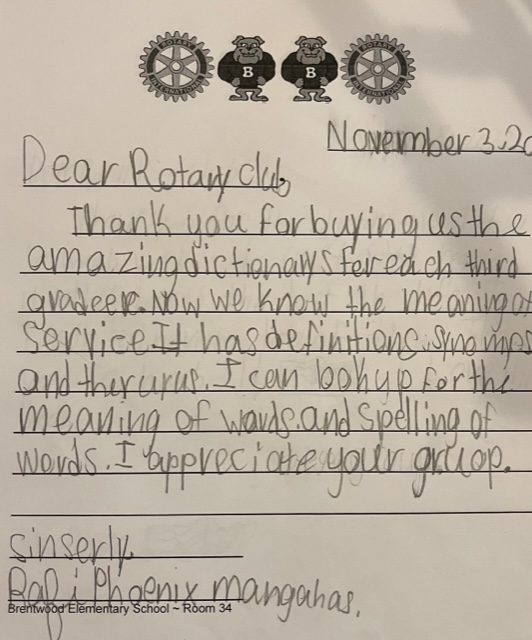 ROTARY INTERNATIONAL B B ROTARY INTERNATIONAL
November 3.20
Dear Rotary club,
Thank you for buying us the
amazing dictionarys for each third
gradeer. Now we know the meaning of
Service It has definitions
and I can look up for the
meaning of words. and spelling of
words. I appreciate your gruop.
sinserly,
Rafi Phoenix mangahas.
Brentwood Elementary School ~ Room 34